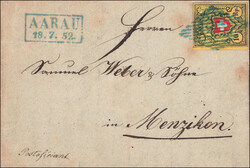 AARAU
19. 7. 52.
Herren
Samuel Weber & Söhne
in Menzikon.